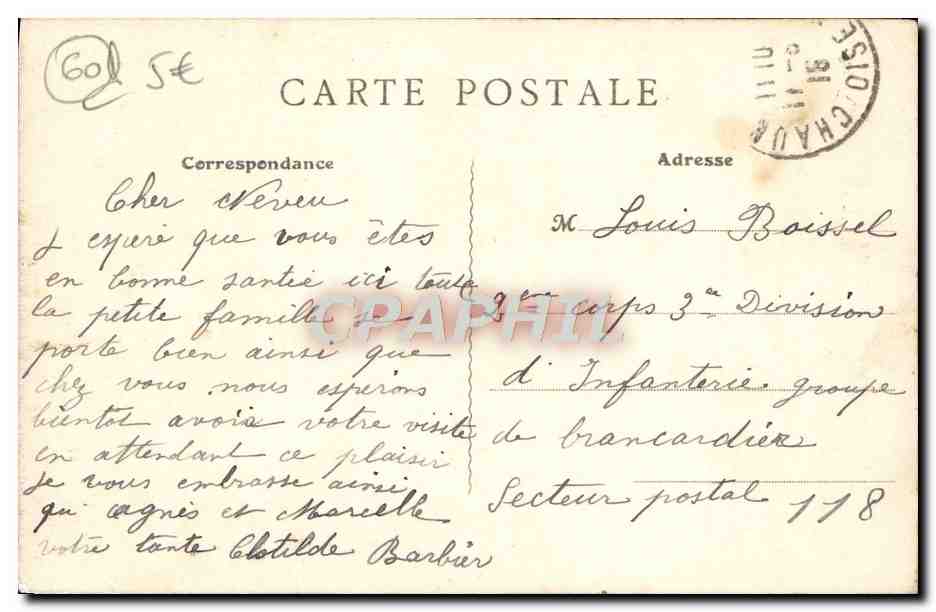 60
5€
CARTE POSTALE
Correspondance
Cher Neveu
J espere que vous êtes
en bonne santée ici toute
la petite famille se
porte bien ainsi que
chez vous nous esperons
bientot avoir votre visite
en attendant ce plaisir
je vous embrasse ainsi
qu Agnès et Marcelle
votre tante Clotilde Barbier
Adresse
M Louis Boissel
2ème corps 3e Division
d' Infanterie groupe
de brancardier
Secteur postal 118
CPAPHIL
CHAU OISE